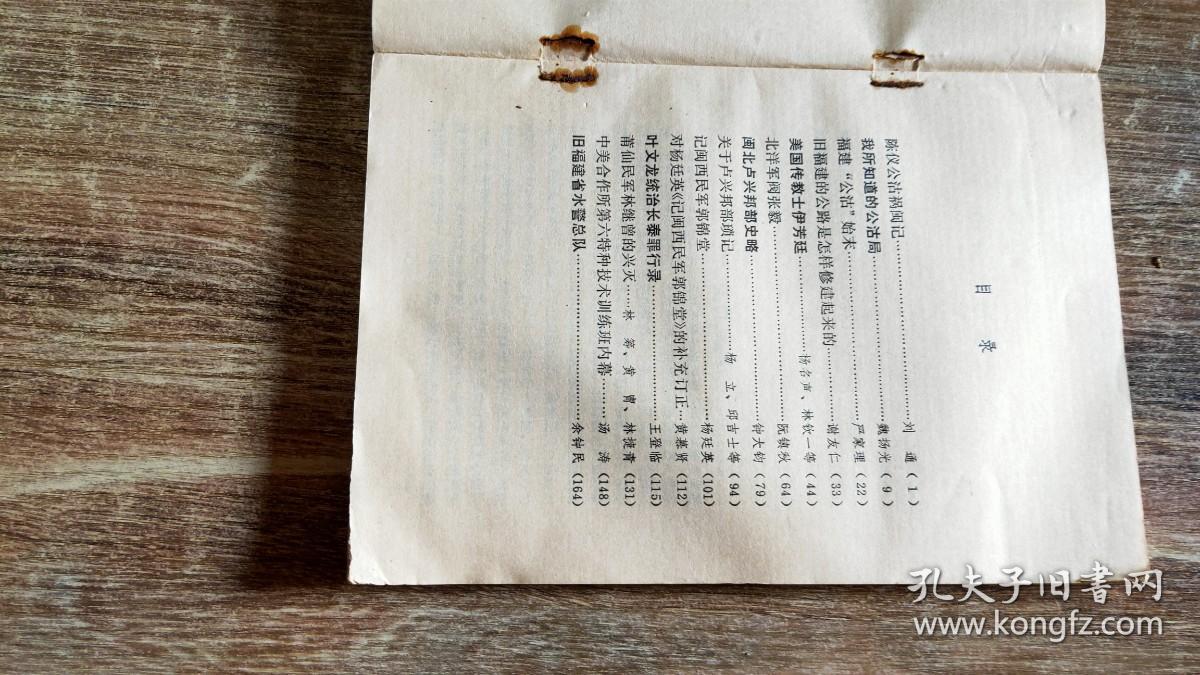 目录
陈仪公沽祸闽记………刘通（1）
我所知道的公沽局………魏扬光（9）
福建“公沽”始末………严家理（22）
旧福建的公路是怎样修建起来的………谢友仁（33）
美国传教士伊芳廷………杨名声、林钦一等（44）
北洋军阀张毅………阮镇秋（64）
闽北卢兴邦部史略………钟大钧（79）
关于卢兴邦部琐记………杨立、邱吉士等（94）
记闽西民军郭锦堂………杨廷英（101）
对杨廷英《记闽西民军郭锦堂》的补充订正…黄慕贤（112）
叶文龙统治长泰罪行录………王登临（115）
莆仙民军林继曾的兴灭……林筹、黄胄、林捷青（131）
中美合作所第六特种技术训练班内幕……汤涛（148）
旧福建省水警总队………余钟民（164）
孔夫子旧书网
www.kongfz.com